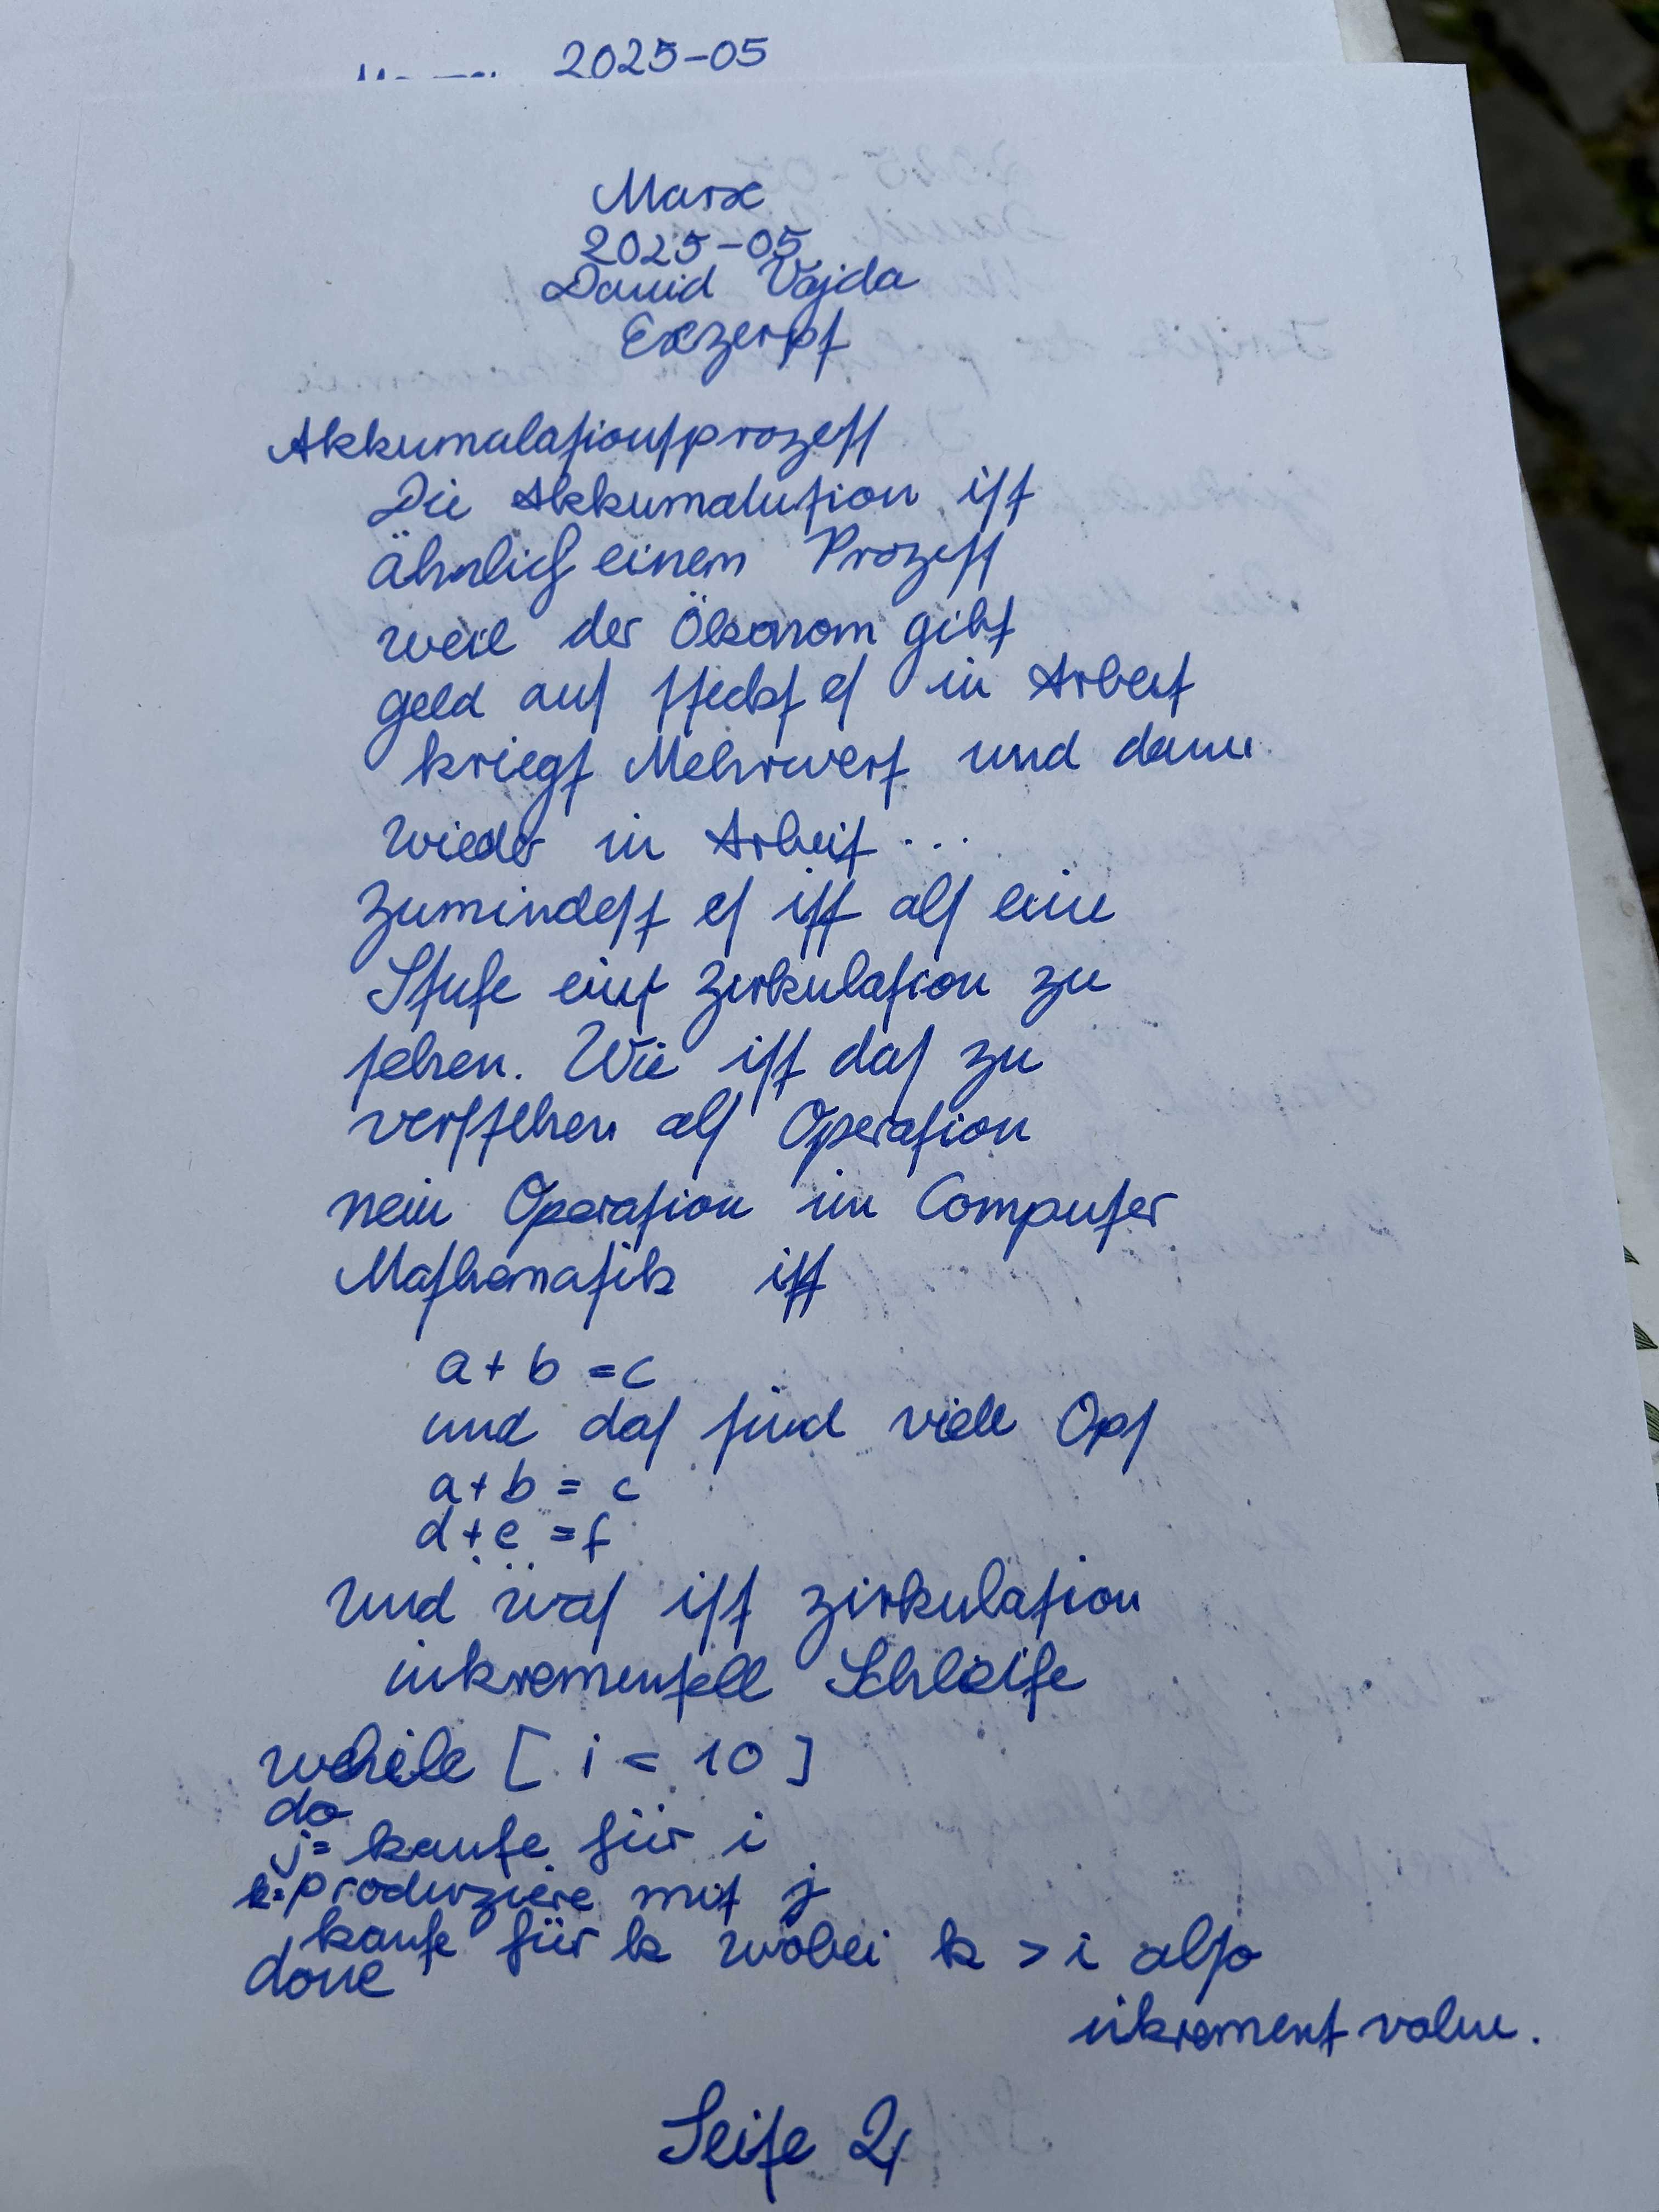 2025-05
Marx
2025-05
David Vajda
Exzerpt
Akkumalationsprozess
Die Akkumalution ist
ähnlich einem Prozess
weil der Ökonom gibt
geld aus steckt es in Arbeit
kriegt Mehrwert und dann
wieder in Arbeit ...
zumindest es ist als eine
Stufe einer Zirkulation zu
sehen. Wie ist das zu
verstehen als Operation
nein Operation im Computer
Mathematik ist
a + b = c
und das sind viele Ops
a + b = c
d + e = f
...
und was ist zirkulation
inkrementell Schleife
while [ i = 10 ]
do
j = kaufe für i
k = produziere mit j
kaufe für k wobei k > i also
done
inkrement value.
Seite 2